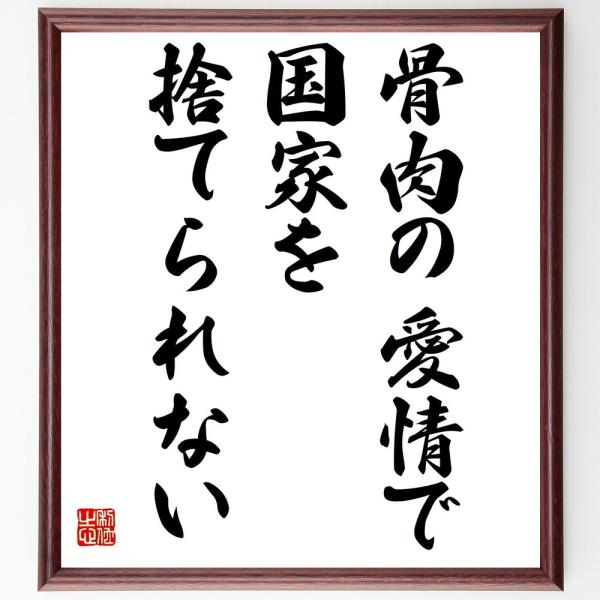 骨肉の愛情で
国家を
捨てられない